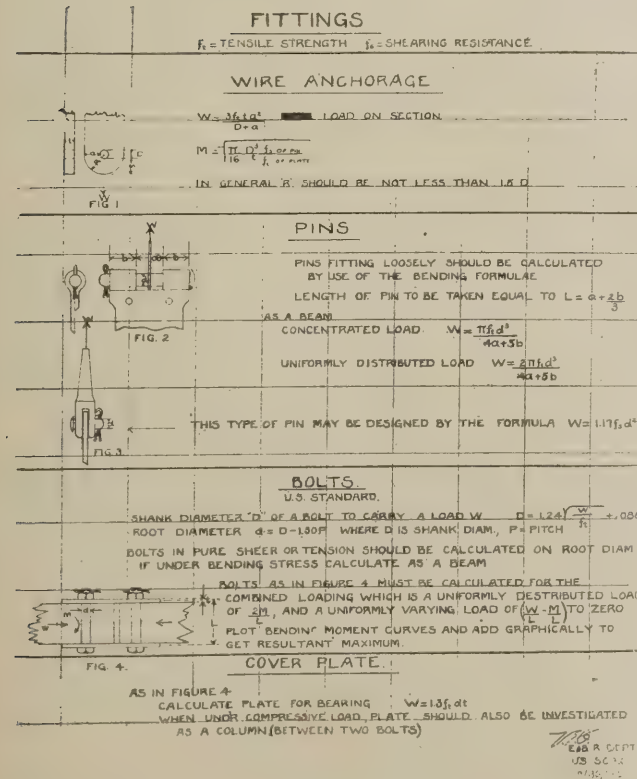 FITTINGS
fₜ = TENSILE STRENGTH fₛ = SHEARING RESISTANCE
WIRE ANCHORAGE
W = 3fₛta² / D+a LOAD ON SECTION
M = √ π/16 D³/t fₜ OF PIN / fₜ OF PLATE
IN GENERAL "R" SHOULD BE NOT LESS THAN 1.5 D
W
FIG 1
PINS
PINS FITTING LOOSELY SHOULD BE CALCULATED
BY USE OF THE BENDING FORMULAE
LENGTH OF PIN TO BE TAKEN EQUAL TO L = a + 2b/3
AS A BEAM
CONCENTRATED LOAD. W = πfₜd³ / 4a+3b
UNIFORMLY DISTRIBUTED LOAD W = 2πfₜd³ / 4a+3b
W
b a b
FIG. 2
W
THIS TYPE OF PIN MAY BE DESIGNED BY THE FORMULA W = 1.17fₛd²
FIG. 3
BOLTS.
U.S. STANDARD.
SHANK DIAMETER "D" OF A BOLT TO CARRY A LOAD W D = 1.24 √ W/fₜ + .088
ROOT DIAMETER d = D - 1.30P WHERE D IS SHANK DIAM., P = PITCH
BOLTS IN PURE SHEER OR TENSION SHOULD BE CALCULATED ON ROOT DIAM
IF UNDER BENDING STRESS CALCULATE AS A BEAM
BOLTS AS IN FIGURE 4 MUST BE CALCULATED FOR THE
COMBINED LOADING WHICH IS A UNIFORMLY DESTRIBUTED LOAD
OF 2M/L, AND A UNIFORMLY VARYING LOAD OF (W/L - M/L) TO ZERO
PLOT BENDING MOMENT CURVES AND ADD GRAPHICALLY TO
GET RESULTANT MAXIMUM.
M d L
FIG. 4.
COVER PLATE.
AS IN FIGURE 4
CALCULATE PLATE FOR BEARING W = 1.3fₜdt
WHEN UNDR COMPRESSIVE LOAD, PLATE SHOULD ALSO BE INVESTIGATED
AS A COLUMN (BETWEEN TWO BOLTS)
E & R DEPT